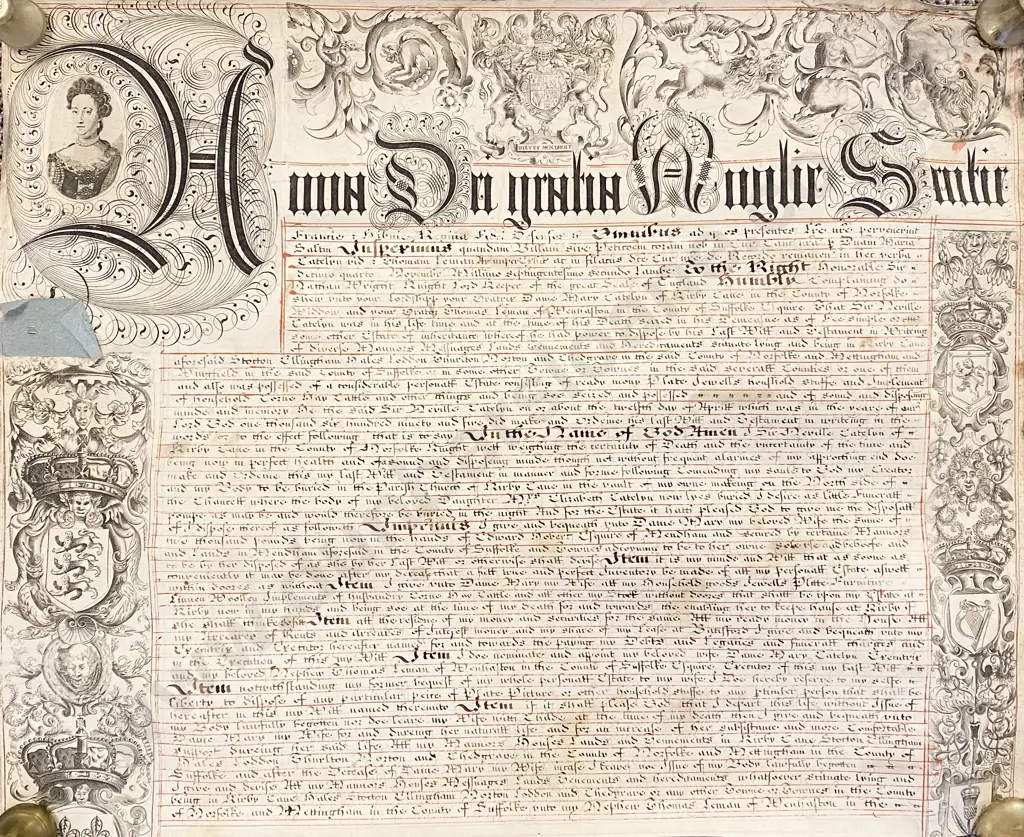 Anna Dei gratia Anglie Scotie
DIEU ET MON DROIT
Francie & Hibnie Regina Fid Omnibus ad quos presentes Lre nre pervenerint
Saltm Inspeximus quandam Billam sive Peticoem coram nob in Cur Dnam Maria
Catelyn vid Thomam Leman Armiger in filaciis dce Cur de Recordo remanen in her verba
decimo quarto Novembr Millimo septingentesimo secundo To the Right Honorable Sir
Nathan Wright Knight Lord Keeper of the great Seale of England Humbly Complaining do
shew unto your Lordshipp your Oratrix Dame Mary Catelyn of Kirby Cane in the County of Norfolke
Widdow and your Orator Thomas Leman of Wenhaston in the County of Suffolke Esquire That Sir Neville
Catelyn was in his life time and at the time of his Death seized in his Demeasne as of Fee simple or
some other Estate of inheritance whereof he had power to dispose by his Last Will and Testament in Writing
of diverse Mannors Messuages Lands Tenements and Hereditaments situate lying and being in Kirby Cane
aforesaid Stocton Ellingham Hales Loddon Thurlton Norton and Chedgrave in the said County of Norfolke and Mettingham and
Wingfield in the said County of Suffolke or in some other Towne or Townes in the said severall Counties or one of them
and also was possessed of a considerable personall Estate consisting of ready mony Plate Jewells houshold stuffe and Implemts
of household Corne Hay Cattle and other things and being soe seized and possessed and of sound and disposing
minde and memory He the said Sir Neville Catelyn on or about the twelfth day of Aprill which was in the yeare of our
Lord God one thousand six hundred ninety and five did make and Ordeine his Last Will and Testament in writing in the
words or to the effect following that is to say In the Name of God Amen I Sir Neville Catelyn of
Kirby Cane in the County of Norfolke Knight well weighing the certainty of Death and the uncertainty of the time and
being now in perfect health and of sound and disposing minde though not without frequent alarmes of my approching end doe
make and Ordeine this my Last Will and Testament in manner and forme following Comending my soule to God my Creator
and my Body to be buried in the Parish Church of Kirby Cane in the vault of my owne makeing on the North side of
Chancell where the body of my beloved Daughter Mrs Elizabeth Catelyn now lyes buried I desire as little Funerall
pompe as may be and would therefore be buried in the night And for the Estate it hath pleased God to give me the disposall
of I dispose thereof as followeth Imprimis I give and bequeath unto Dame Mary my beloved Wife the summe of
two thousand pounds being now in the hands of Edward Esquire of Mendham and secured by certaine Mannors
and Lands in Mendham aforesaid in the County of Suffolke and to be to her owne sole and
to be by her disposed of as she by her Last Will or otherwise shall devise Item it is my minde and will that as soone as
conveniently it may be done after my decease that a full true and perfect Inventory be made of all my personall Estate aswell
within doores as without Item I give unto Dame Mary my Wife all my Household goods Jewells Plate Furniture
Linnen Woollen Implements of husbandry Corne Hay Cattle and all other my Stock without doores that shall be upon my Estate at
Kirby now in my hands and being soe at the time of my death for and towards the enabling her to keepe house at Kirby if
she shall thinke fitt Item all the residue of my money and securities for the same All my ready money in the House All
my Arreares of Rents and arreares of money and my share of my Lease at I give and bequeath unto my
Executrix and Executor hereafter named for and towards the paying my debts and Legacies and funerall charges and
in the Execution of this my Will Item I doe nominate and appoint my beloved wife Dame Mary Catelyn Executrix
and my beloved Nephew Thomas Leman of Wenhaston in the County of Suffolke Esquire Executor of this my last Will
Item notwithstanding my former bequest of my whole personall Estate to my wife I Doe hereby reserve to my selfe
liberty to dispose of any particular peice of Plate Picture or other household stuffe to any pticuler person that shall be
hereafter in this my Will named thereunto Item if it shall please God that I depart this life without Issue of
my Body lawfully begotten nor doe leave my Wife with Childe at the time of my death then I give and bequeath unto
my Wife for and dureing her naturall life and for an increase of her subsistance and more Comfortable
support dureing her said life All my Mannors Houses Lands and Tenements in Kirby Cane Stocton Ellingham
Hales Loddon Thurlton Norton and Chedgrave in the County of Norfolke and Mettingham in the County of
Suffolke and after the Decease of Dame Mary my Wife incase I leave noe Issue of my Body lawfully begotten
I give and devise All my Mannors Houses Messuages Lands Tenements and hereditaments whatsoever situate lying and
being in Kirby Cane Hales Stocton Ellingham Norton Loddon and Chedgrave or any other Towne or Townes in the County
of Norfolke and Mettingham in the County of Suffolke unto my Nephew Thomas Leman of Wenhaston in the